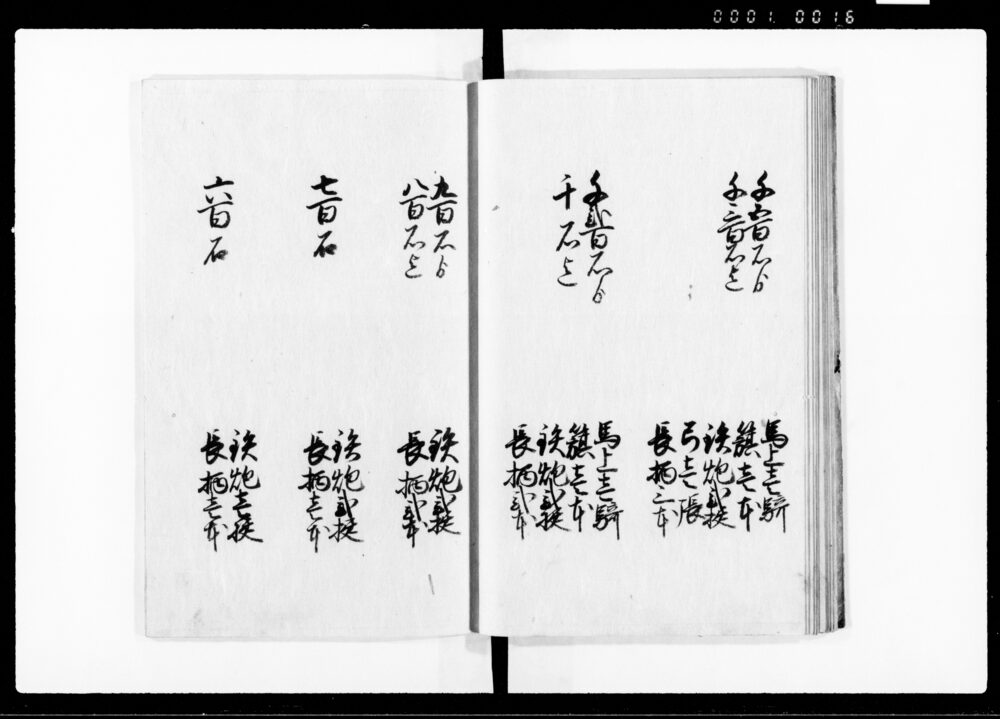 0001 0016
千五百石ゟ
千三百石迄
馬上壱騎
籏壱本
鉄炮弐挺
弓壱張
長柄三本
千弐百石ゟ
千石迄
馬上壱騎
籏壱本
鉄炮弐挺
長柄弐本
九百石ゟ
八百石迄
鉄炮弐挺
長柄弐本
七百石
鉄炮弐挺
長柄壱本
六百石
鉄炮壱挺
長柄壱本